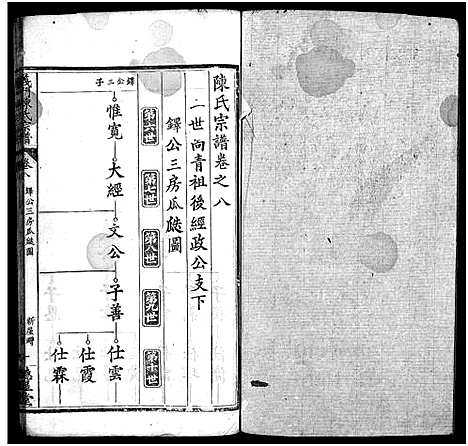 陳氏宗譜卷之八
二世向青祖後經政公支下
鐸公三房瓜瓞圖
第六世
第七世
第八世
第九世
第十世
鐸公三子
惟寬
大經
文公
子善
仕雲
仕霞
仕霖
陳氏宗譜
卷八
鐸公三房瓜瓞圖
新屋灣
一